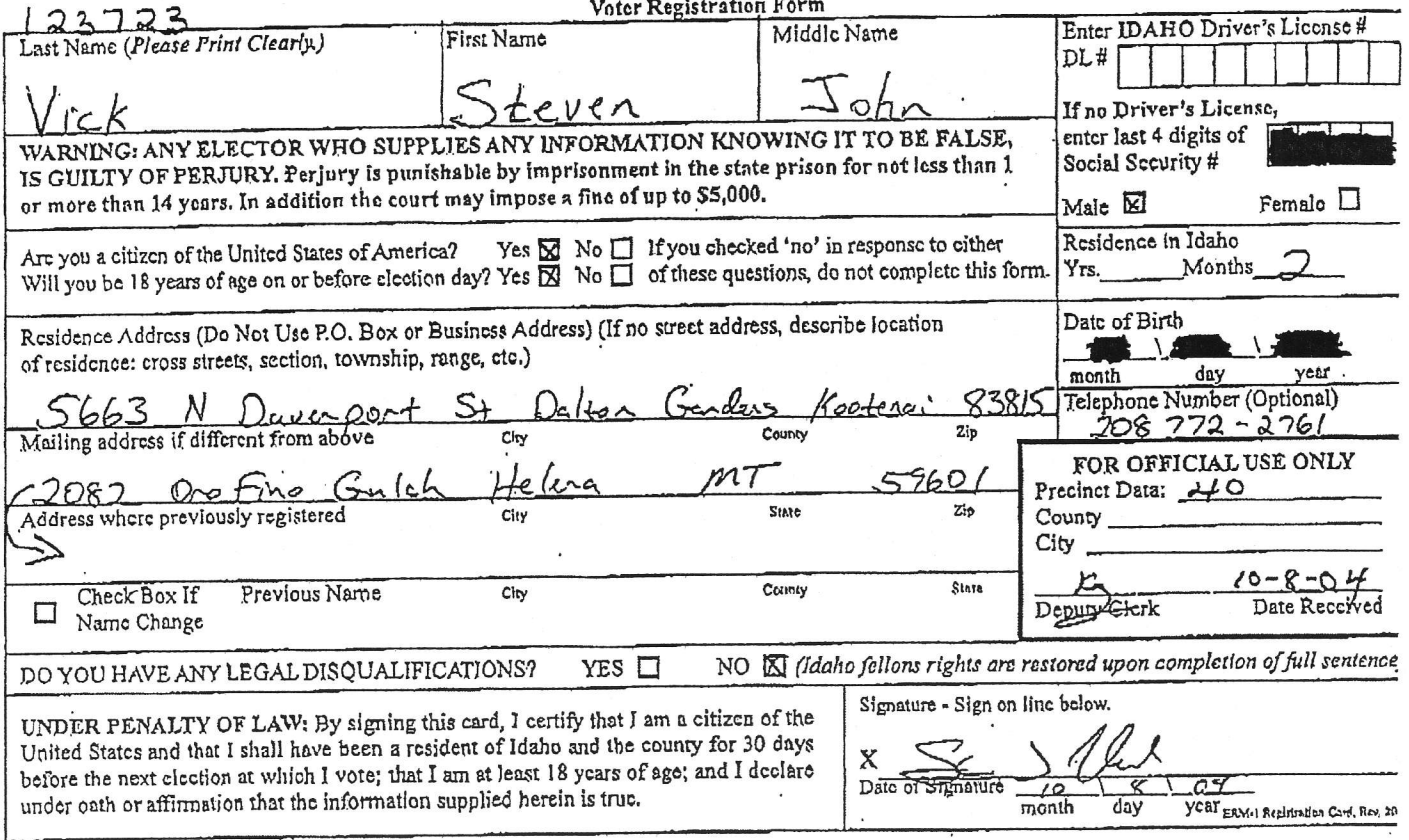 Voter Registration Form
123723
Last Name (Please Print Clearly) First Name Middle Name
Vick Steven John
Enter IDAHO Driver's License #
DL #
If no Driver's License,
enter last 4 digits of
Social Security #
Male ☒ Female ☐
WARNING: ANY ELECTOR WHO SUPPLIES ANY INFORMATION KNOWING IT TO BE FALSE,
IS GUILTY OF PERJURY. Perjury is punishable by imprisonment in the state prison for not less than 1
or more than 14 years. In addition the court may impose a fine of up to $5,000.
Are you a citizen of the United States of America? Yes ☒ No ☐ If you checked 'no' in response to either
Will you be 18 years of age on or before election day? Yes ☒ No ☐ of these questions, do not complete this form.
Residence in Idaho
Yrs. Months 2
Residence Address (Do Not Use P.O. Box or Business Address) (If no street address, describe location
of residence: cross streets, section, township, range, etc.)
5663 N Davenport St Dalton Gardens Kootenai 83815
Date of Birth
month day year
Telephone Number (Optional)
208 772-2761
Mailing address if different from above City County Zip
2082 Oro Fino Gulch Helena MT 59601
Address where previously registered City State Zip
Check Box If Previous Name City County State
☐ Name Change
FOR OFFICIAL USE ONLY
Precinct Data: 40
County
City
10-8-04
Deputy Clerk Date Received
DO YOU HAVE ANY LEGAL DISQUALIFICATIONS? YES ☐ NO ☒ (Idaho fellons rights are restored upon completion of full sentence
UNDER PENALTY OF LAW: By signing this card, I certify that I am a citizen of the
United States and that I shall have been a resident of Idaho and the county for 30 days
before the next election at which I vote; that I am at least 18 years of age; and I declare
under oath or affirmation that the information supplied herein is true.
Signature - Sign on line below.
X
Date of Signature 10 \ 8 \ 04
month day year ERM-1 Registration Card, Rev. 20